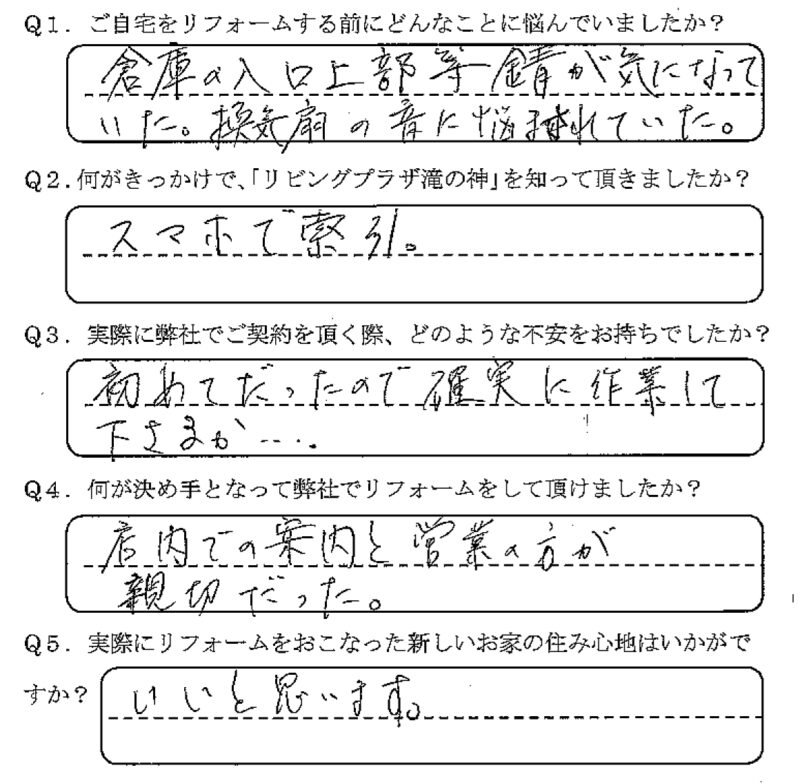 Q1．ご自宅をリフォームする前にどんなことに悩んでいましたか？
倉庫の入口上部等錆が気になって
いた。換気扇の音に悩まされていた。
Q2．何がきっかけで、「リビングプラザ滝の神」を知って頂きましたか？
スマホで索引。
Q3．実際に弊社でご契約を頂く際、どのような不安をお持ちでしたか？
初めてだったので確実に作業して
下さるか….
Q4．何が決め手となって弊社でリフォームをして頂けましたか？
店内での案内と営業の方が
親切だった。
Q5．実際にリフォームをおこなった新しいお家の住み心地はいかがで
すか？
いいと思います。